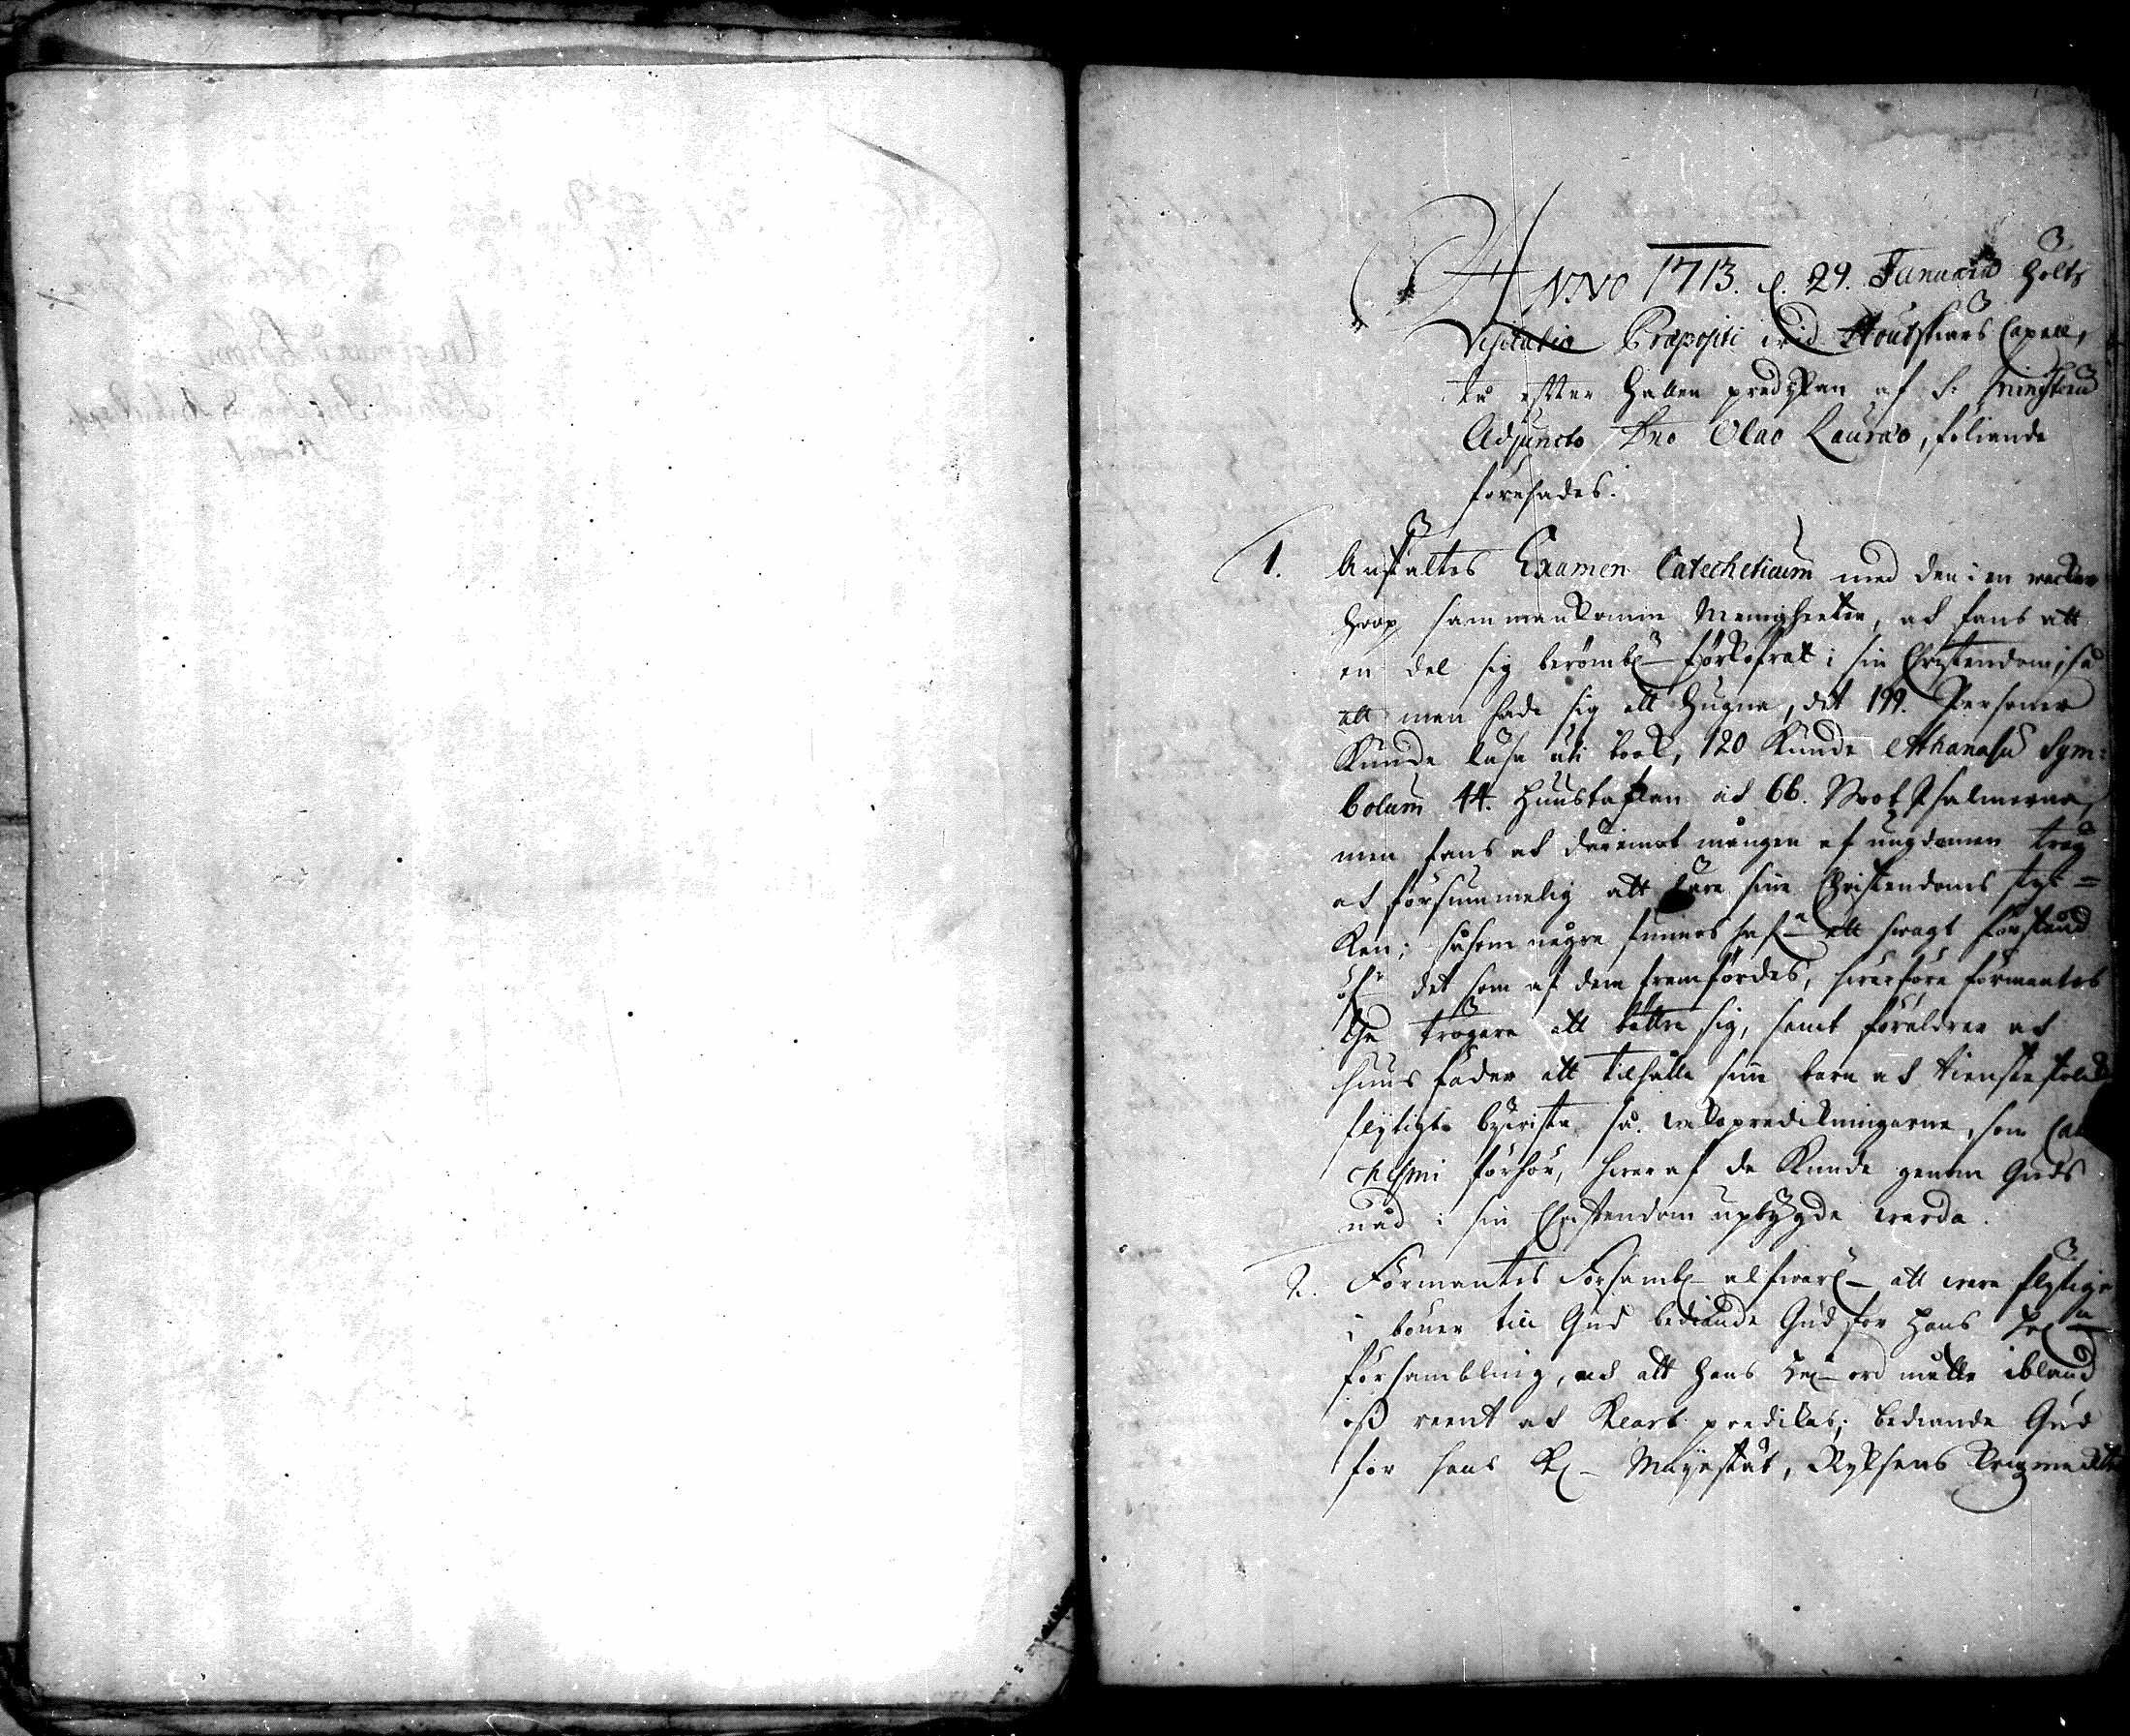 ANNO 1713. d. 29. Januarii holts
Visitatio Præpositi wid Houtskiers Capell,
tå effter hållen predykan af S. Ministerii
Adjuncto Dno Olao Lauræo, föliande
förehades.
1. Anstältes Examen Catecheticum med den i en wacker
hoop sammankomne Menigheeten, ock fans att
en del sig berömbl- förkofrat i sin Christendom, så
att man hade sig att hugna, det 199. Personer
kunde läsa uti book, 120 kunde Athanasii Sym:
bolum 44. Huustaflan ock 66. Boot Psalmerna,
men fans ock däremot mången af ungdomen trög
ock försummelig att lära sine Christendoms styc=
ken; såsom någre funnos haf- ett swagt förstånd
öf- det som af dem framfördes, hwarföre förmantes
the trögare att bättra sig, samt föräldrar ock
huusfäder att tilhålla sine barn ock tienstefolck
flytigt bywista så wekopredikningarne, som Cate
chesmi förhör, hwaraf de kunde genom Guds
nåd i sin Christendom upbygde warda.
2. Förmantes Försambl- alfwarl- att wara flytige
i böner till Gud bediande Gud för Hans
försambling, ock att Hans hel- ord motte ibland
oss reent ock klart predikas; bediande Gud
för hans K- Mayestät, Ryksens krigzmackt